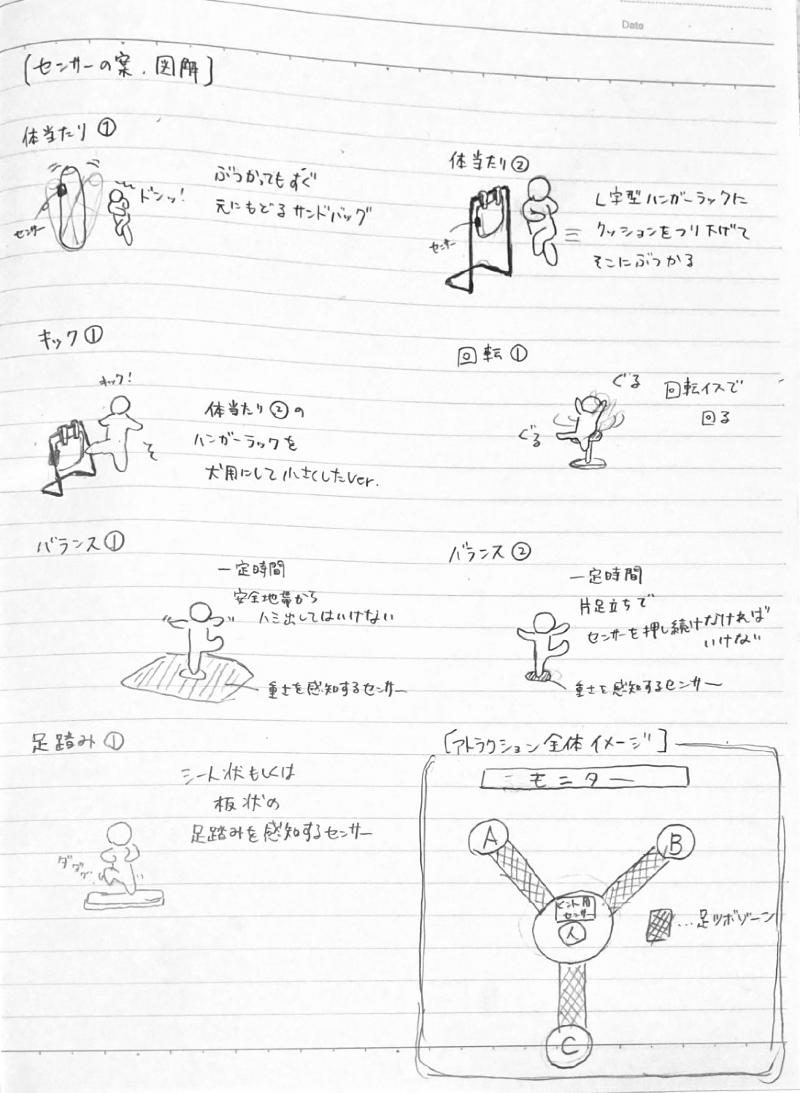 Date
[センサーの案.図解]
体当たり①
センサー
ドンッ!
ぶつかってもすぐ
元にもどるサンドバッグ
体当たり②
センサー
L字型ハンガーラックに
クッションをつり下げて
そこにぶつかる
キック①
キック!
体当たり②の
ハンガーラックを
犬用にして小さくしたver.
回転①
ぐる
ぐる
回転イスで
回る
バランス①
一定時間
安全地帯から
ハミ出してはいけない
重さを感知するセンサー
バランス②
一定時間
片足立ちで
センサーを押し続けなければ
いけない
重さを感知するセンサー
足踏み①
シート状もしくは
板状の
足踏みを感知するセンサー
ダダダ
[アトラクション全体イメージ]
モニター
A
B
ヒント用
センサー
人
…足ツボゾーン
C